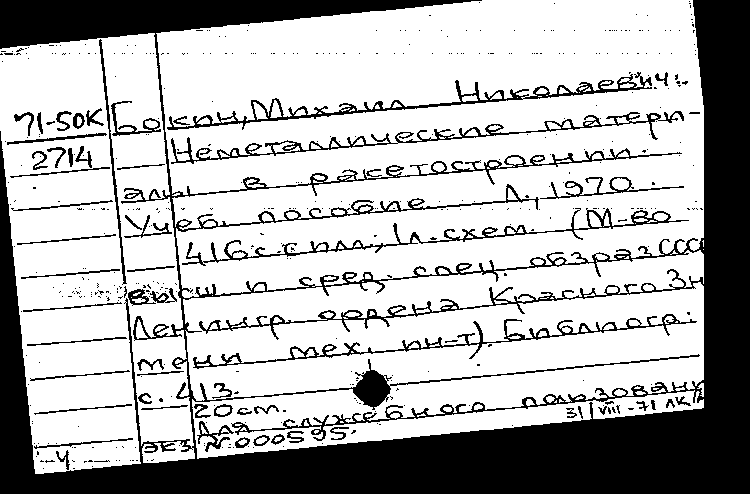 71-50К Бокин, Михаил Николаевич.
2714 Неметаллические матери-
алы в ракетостроении.
Учеб. пособие Л., 1970.
416 с. с илл.; 1 л. схем. (М-во
высш и сред. спец. обзраз СССР
Ленингр. ордена Красного Зн
мени мех. ин-т). Библиогр:
с. 413.
20 см.
Для служебного пользован
31/VIII-71 ЛК
экз. № 000595.
ч